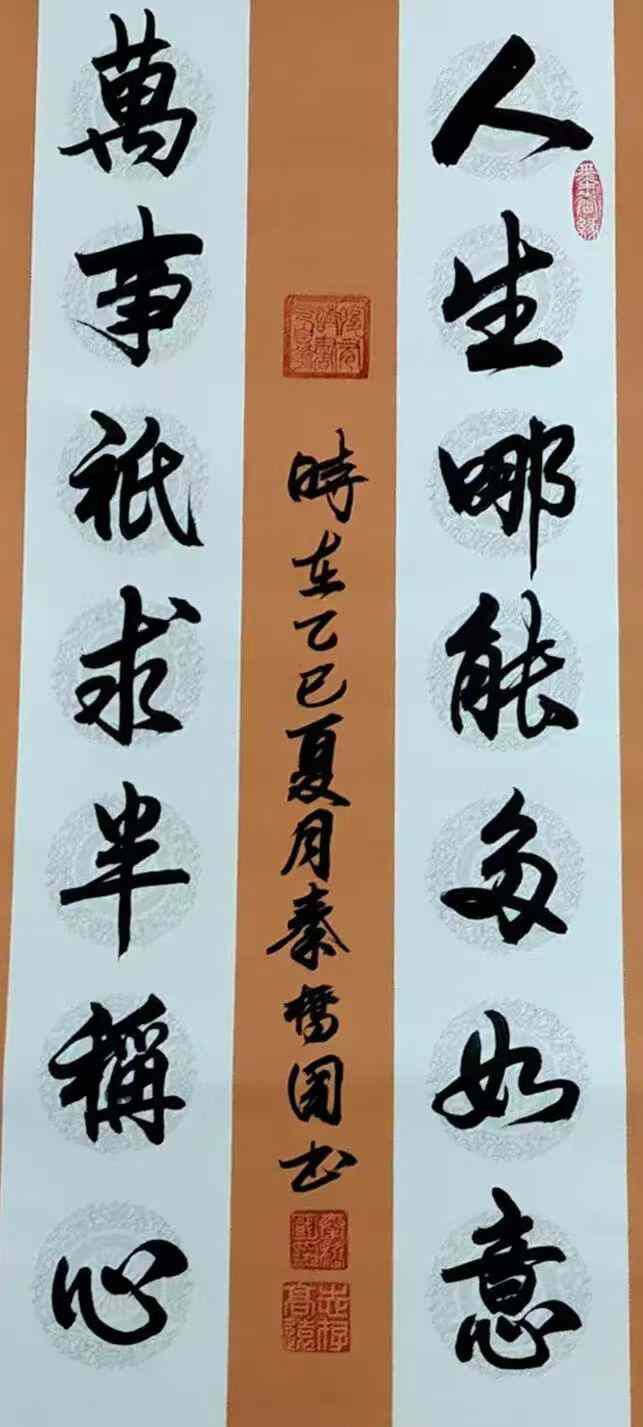 人生哪能多如意
萬事祇求半稱心
時在乙巳夏月秦橋園書